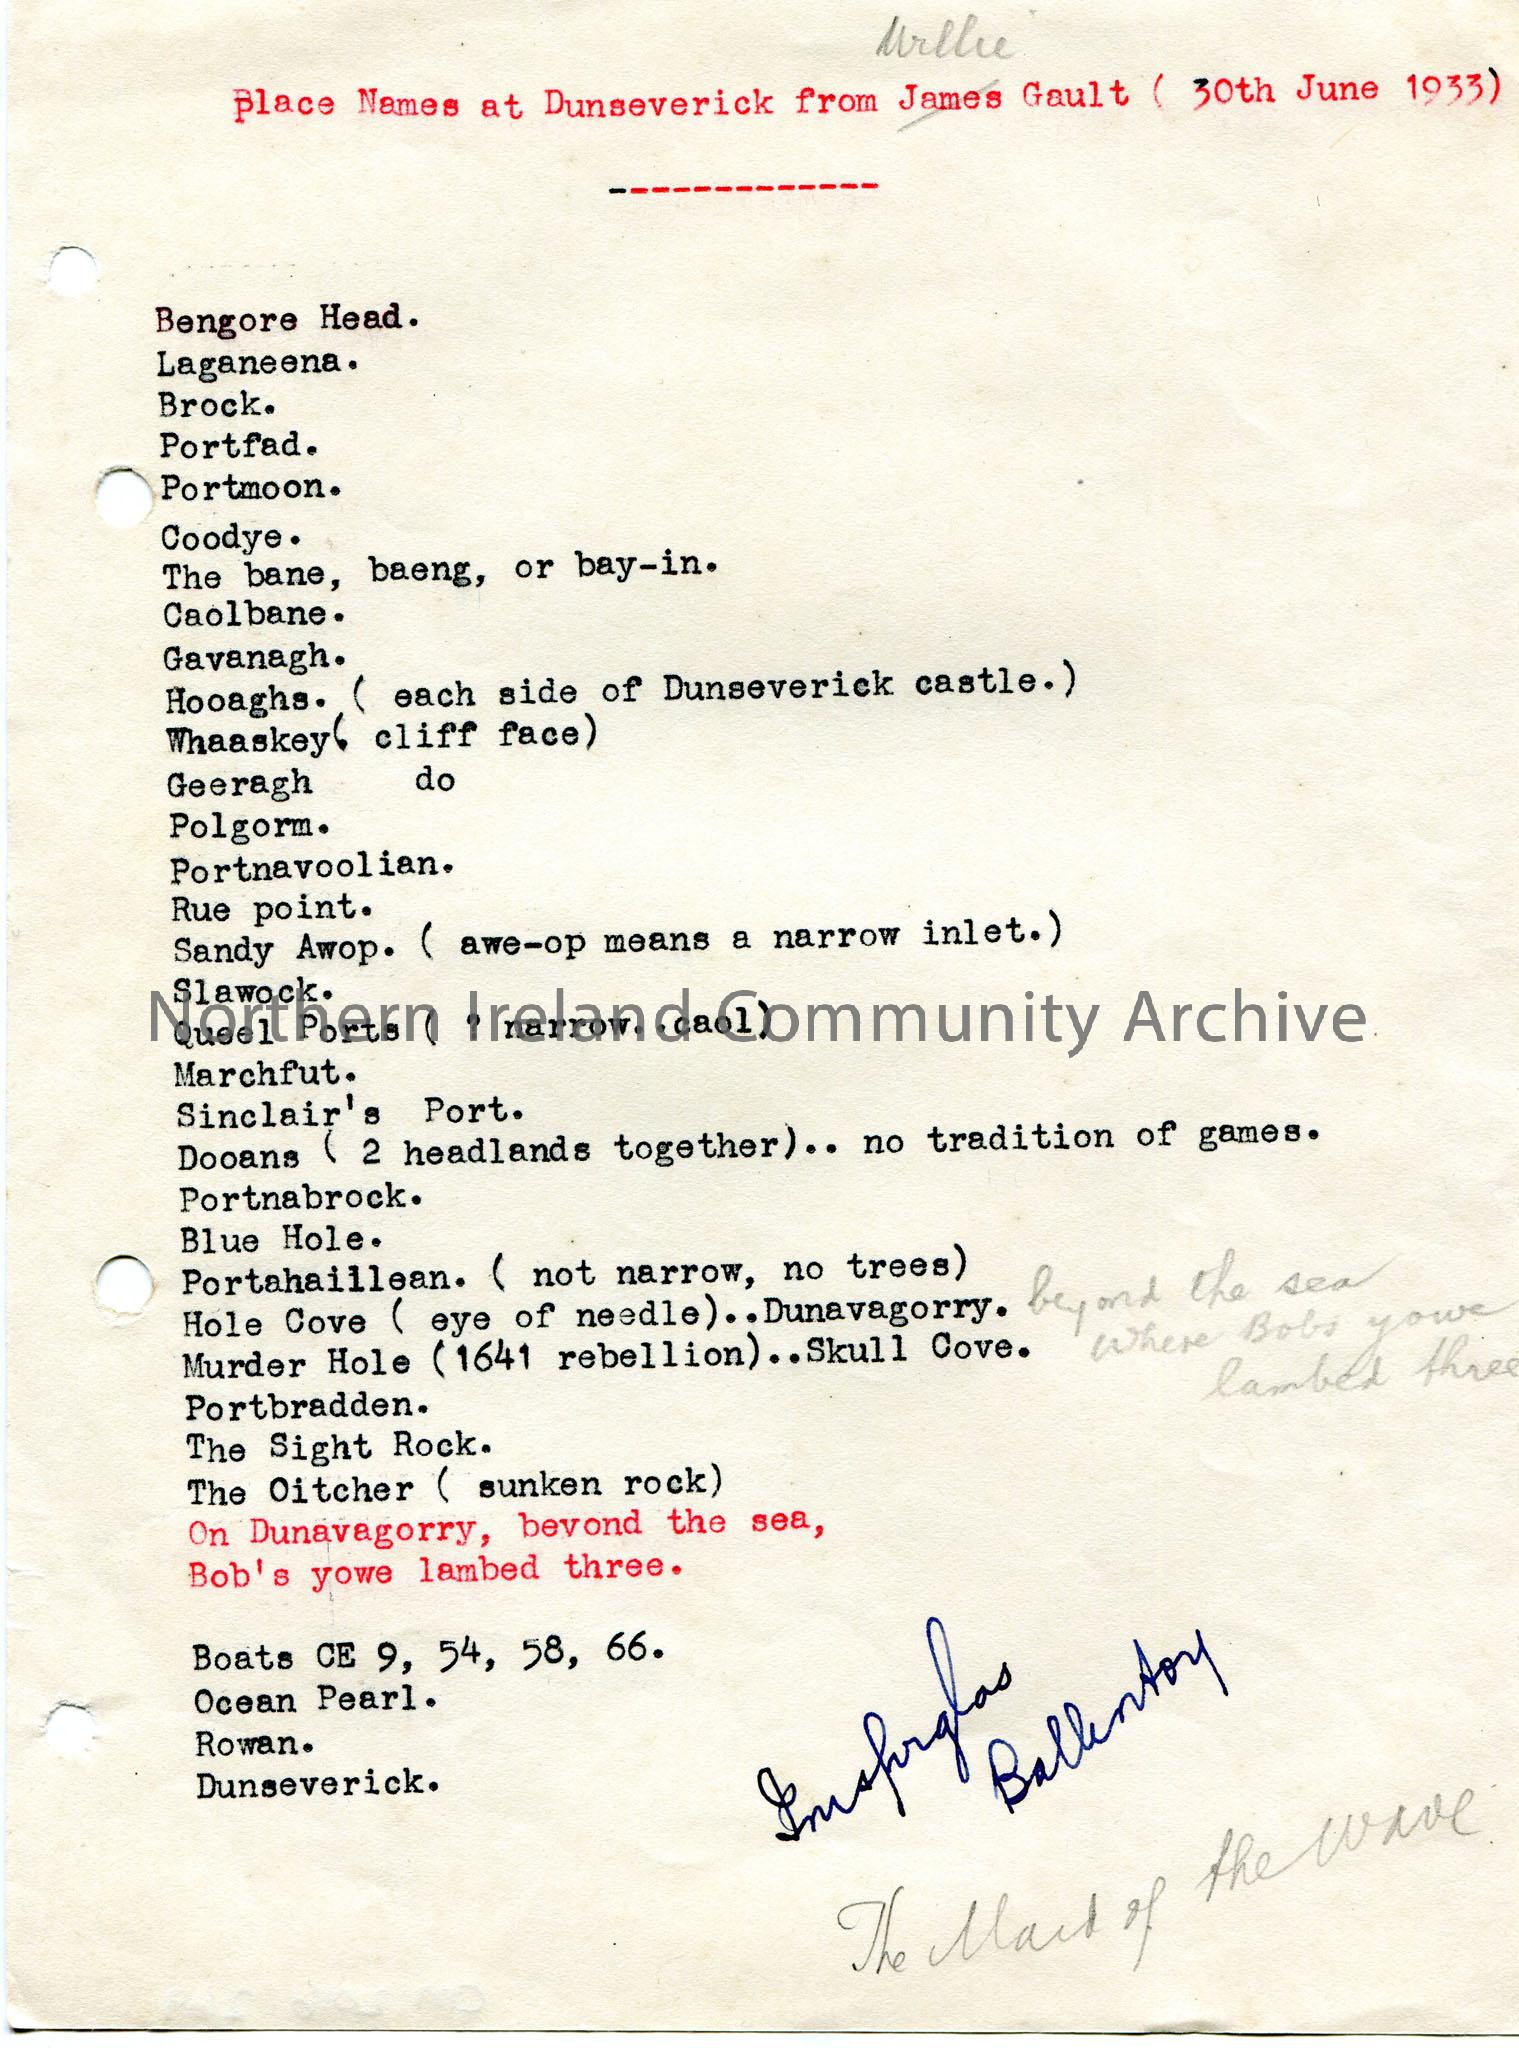 Willie
Place Names at Dunseverick from James Gault ( 30th June 1933)
-------------
Bengore Head.
Laganeena.
Brock.
Portfad.
Portmoon.
Coodye.
The bane, baeng, or bay-in.
Caolbane.
Gavanagh.
Hooaghs. ( each side of Dunseverick castle.)
Whaaskey( cliff face)
Geeragh do
Polgorm.
Portnavoolian.
Rue point.
Sandy Awop. ( awe-op means a narrow inlet.)
Slawock.
Northern Ireland Community Archive
Queel Ports ( ? narrow..caol)
Marchfut.
Sinclair's Port.
Dooans ( 2 headlands together).. no tradition of games.
Portnabrock.
Blue Hole.
Portahaillean. ( not narrow, no trees)
Hole Cove ( eye of needle)..Dunavagorry. beyond the sea
where Bobs yowe
Murder Hole (1641 rebellion)..Skull Cove.
lambed three
Portbradden.
The Sight Rock.
The Oitcher ( sunken rock)
On Dunavagorry, bevond the sea,
Bob's yowe lambed three.
Boats CE 9, 54, 58, 66.
Ocean Pearl.
Rowan.
Dunseverick.
Ballintoy
The Maid of the Wave